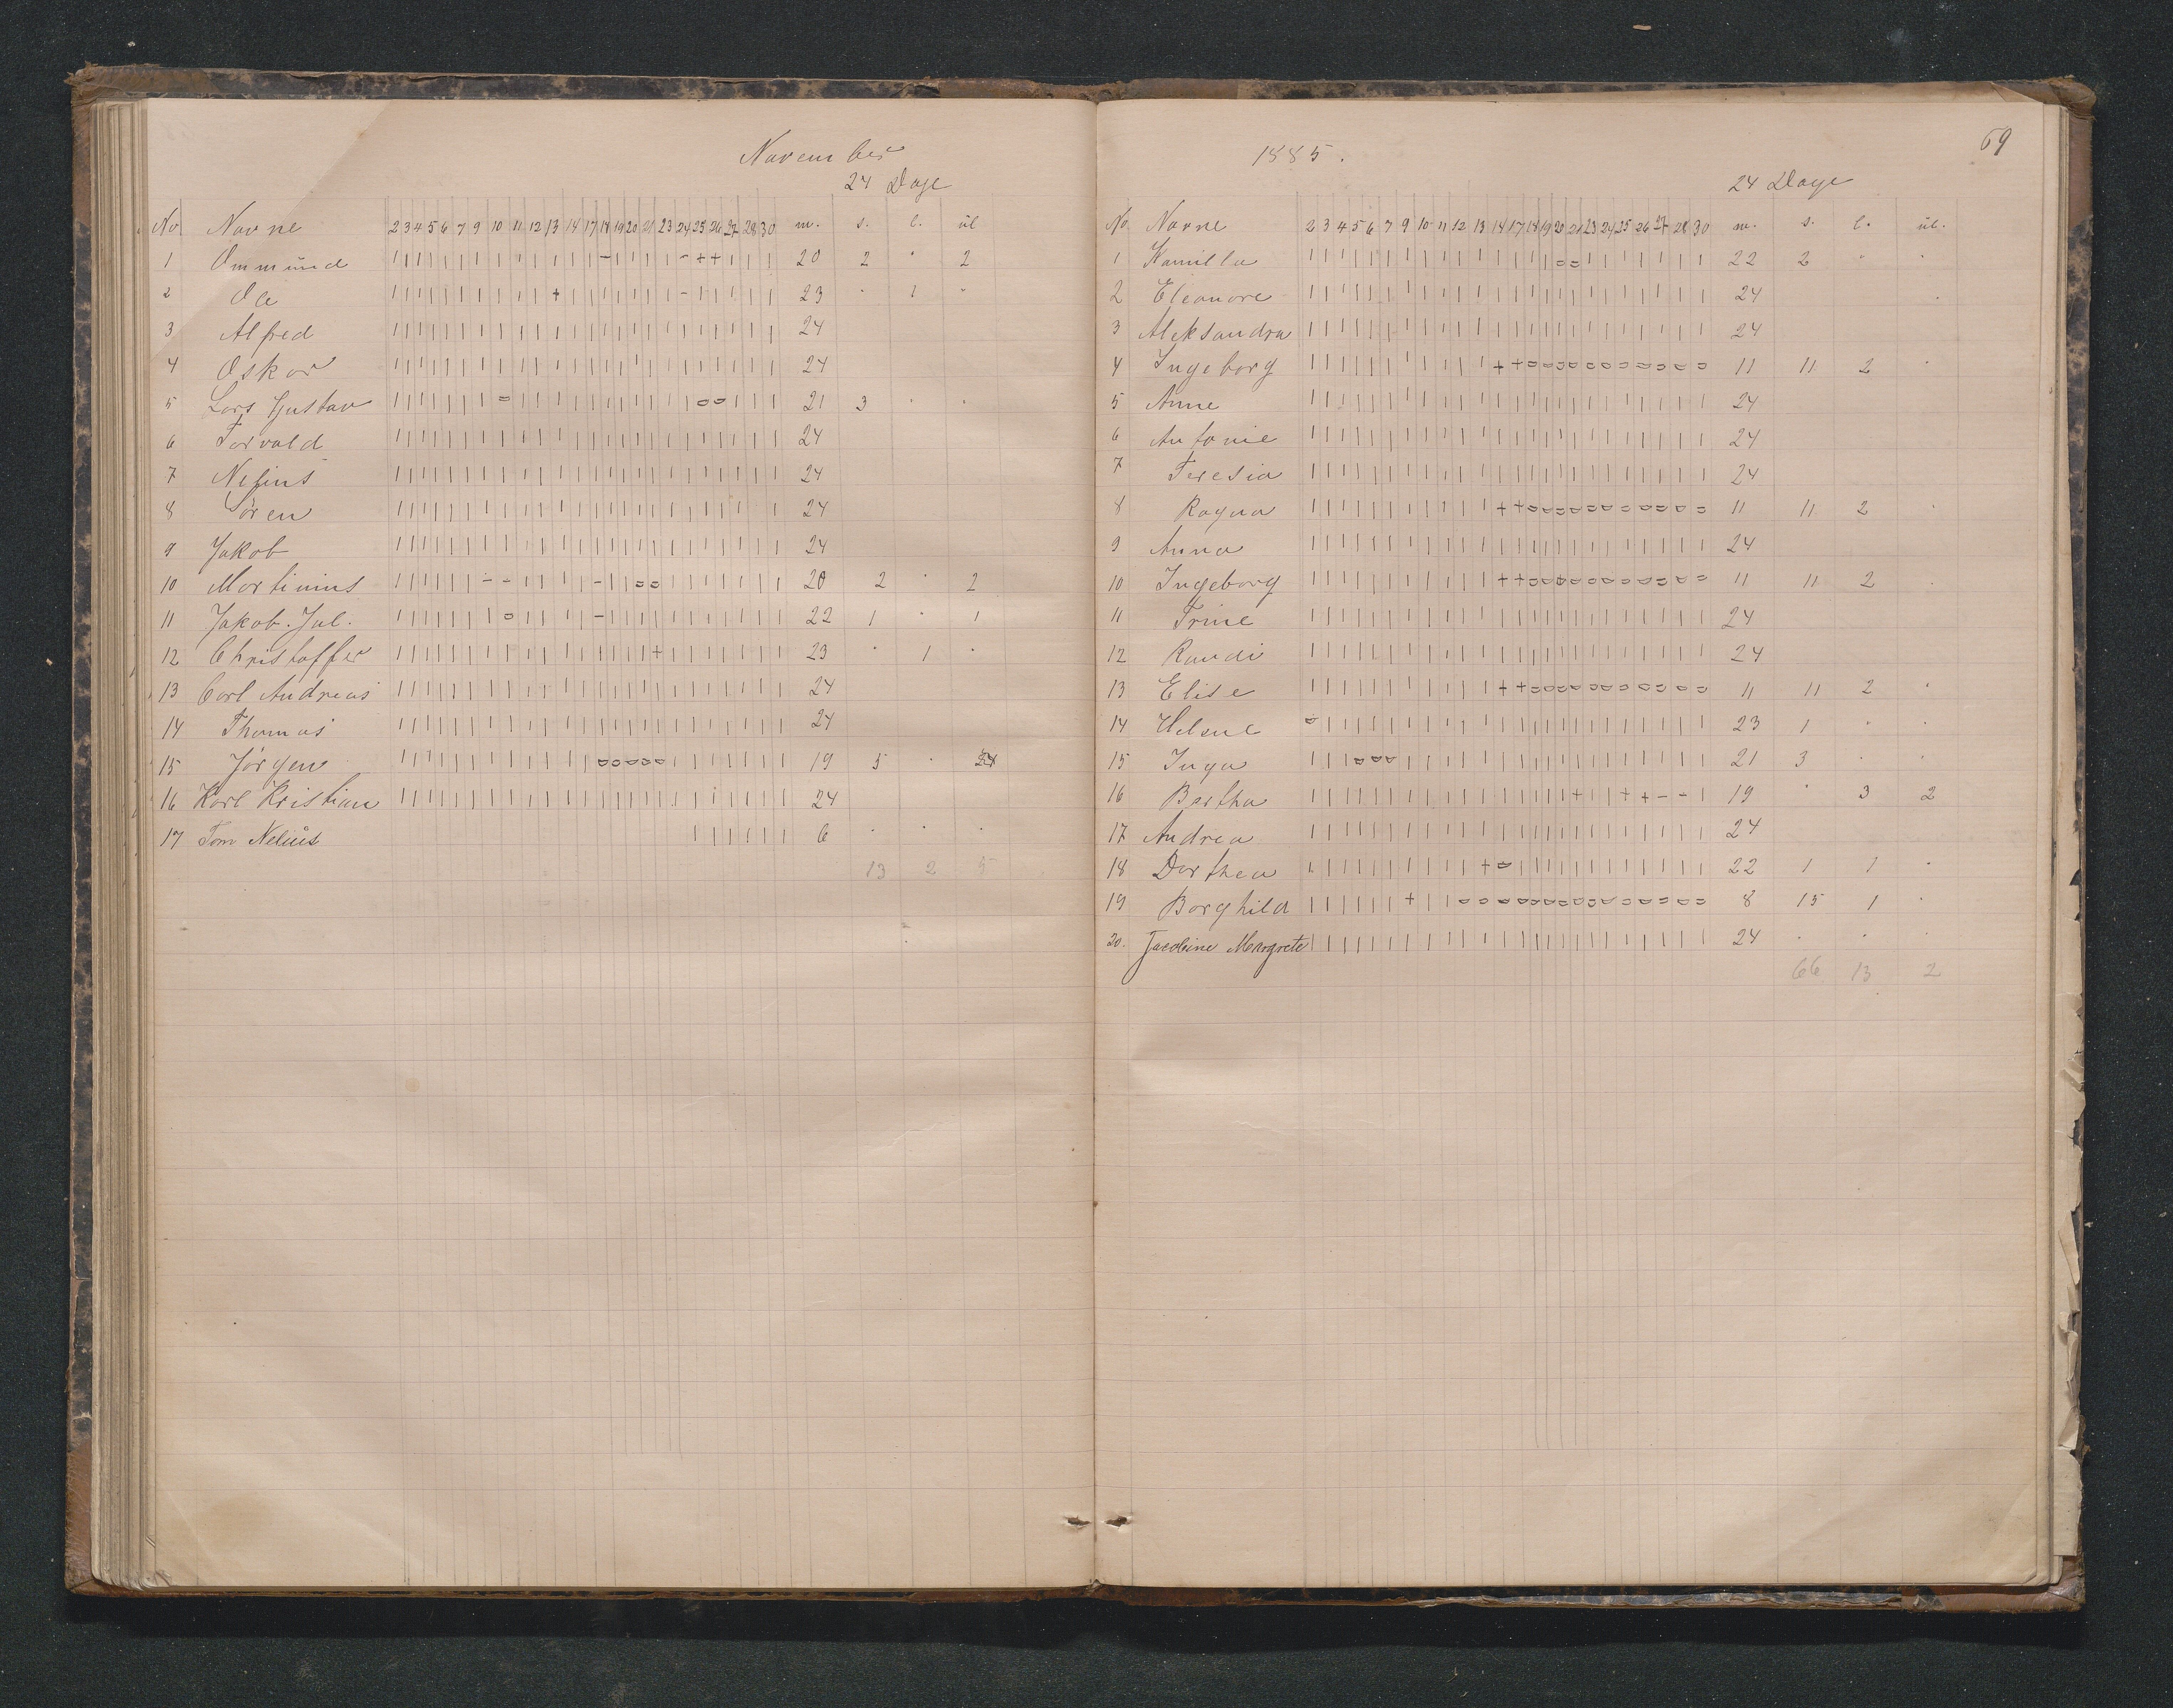 November
24 Dage
No Navne 2 3 4 5 6 7 9 10 11 12 13 14 17 18 19 20 21 23 24 25 26 27 28 30 m. s. l. ul
1 Ommund | | | | | | | | | | | | | - | | | | - + + | | | 20 2 " 2
2 Ole | | | | | | | | | | + | | | | | | | - | | | | | 23 " 1 "
3 Alfred | | | | | | | | | | | | | | | | | | | | | | | | 24
4 Oskar | | | | | | | | | | | | | | | | | | | | | | | | 24
5 Lars Gustav | | | | | | | o | | | | | | | | | | | o o | | | 21 3 " "
6 Torvald | | | | | | | | | | | | | | | | | | | | | | | | 24
7 Nelius | | | | | | | | | | | | | | | | | | | | | | | | 24
8 Søren | | | | | | | | | | | | | | | | | | | | | | | | 24
9 Jakob | | | | | | | | | | | | | | | | | | | | | | | | 24
10 Martinius | | | | | | - - | | | | | - | | o o | | | | | | | 20 2 " 2
11 Jakob. Jul. | | | | | | | o | | | | | - | | | | | | | | | | | 22 1 " 1
12 Christoffer | | | | | | | | | | | | | | | | | + | | | | | | | 23 " 1 "
13 Carl Andreas | | | | | | | | | | | | | | | | | | | | | | | | 24
14 Thomas | | | | | | | | | | | | | | | | | | | | | | | | 24
15 Jørgen | | | | | | | | | | | | | o o o o o | | | | | | 19 5 "
16 Karl Kristian | | | | | | | | | | | | | | | | | | | | | | | | 24
17 Tom Nelius | | | | | | 6 " " "
13 2 5
1885.
69
24 Dage
No. Navne 2 3 4 5 6 7 9 10 11 12 13 14 17 18 19 20 21 23 24 25 26 27 28 30 m. s. l. ul.
1 Kamilla | | | | | | | | | | | | | | | o o | | | | | | | 22 2 " "
2 Eleonore | | | | | | | | | | | | | | | | | | | | | | | | 24
3 Aleksandra | | | | | | | | | | | | | | | | | | | | | | | | 24
4 Ingeborg | | | | | | | | | | | + + o o o o o o o o o o o 11 11 2 "
5 Anne | | | | | | | | | | | | | | | | | | | | | | | | 24
6 Antonie | | | | | | | | | | | | | | | | | | | | | | | | 24
7 Teresia | | | | | | | | | | | | | | | | | | | | | | | | 24
8 Ragna | | | | | | | | | | | + + o o o o o o o o o o o 11 11 2 "
9 Anna | | | | | | | | | | | | | | | | | | | | | | | | 24
10 Ingeborg | | | | | | | | | | | + + o o o o o o o o o o o 11 11 2 "
11 Trine | | | | | | | | | | | | | | | | | | | | | | | | 24
12 Randi | | | | | | | | | | | | | | | | | | | | | | | | 24
13 Elise | | | | | | | | | | | + + o o o o o o o o o o o 11 11 2 "
14 Helene o | | | | | | | | | | | | | | | | | | | | | | | 23 1 " "
15 Inga | | | o o o | | | | | | | | | | | | | | | | | | 21 3 " "
16 Bertha | | | | | | | | | | | | | | | | + | | + + - - | 19 " 3 2
17 Andrea | | | | | | | | | | | | | | | | | | | | | | | | 24
18 Dorthea | | | | | | | | | | + o | | | | | | | | | | | | 22 1 1 "
19 Borghild | | | | | | + | | o o o o o o o o o o o o o o o 8 15 1 "
20. Jacobine Margrete | | | | | | | | | | | | | | | | | | | | | | | | 24 " " "
66 13 2